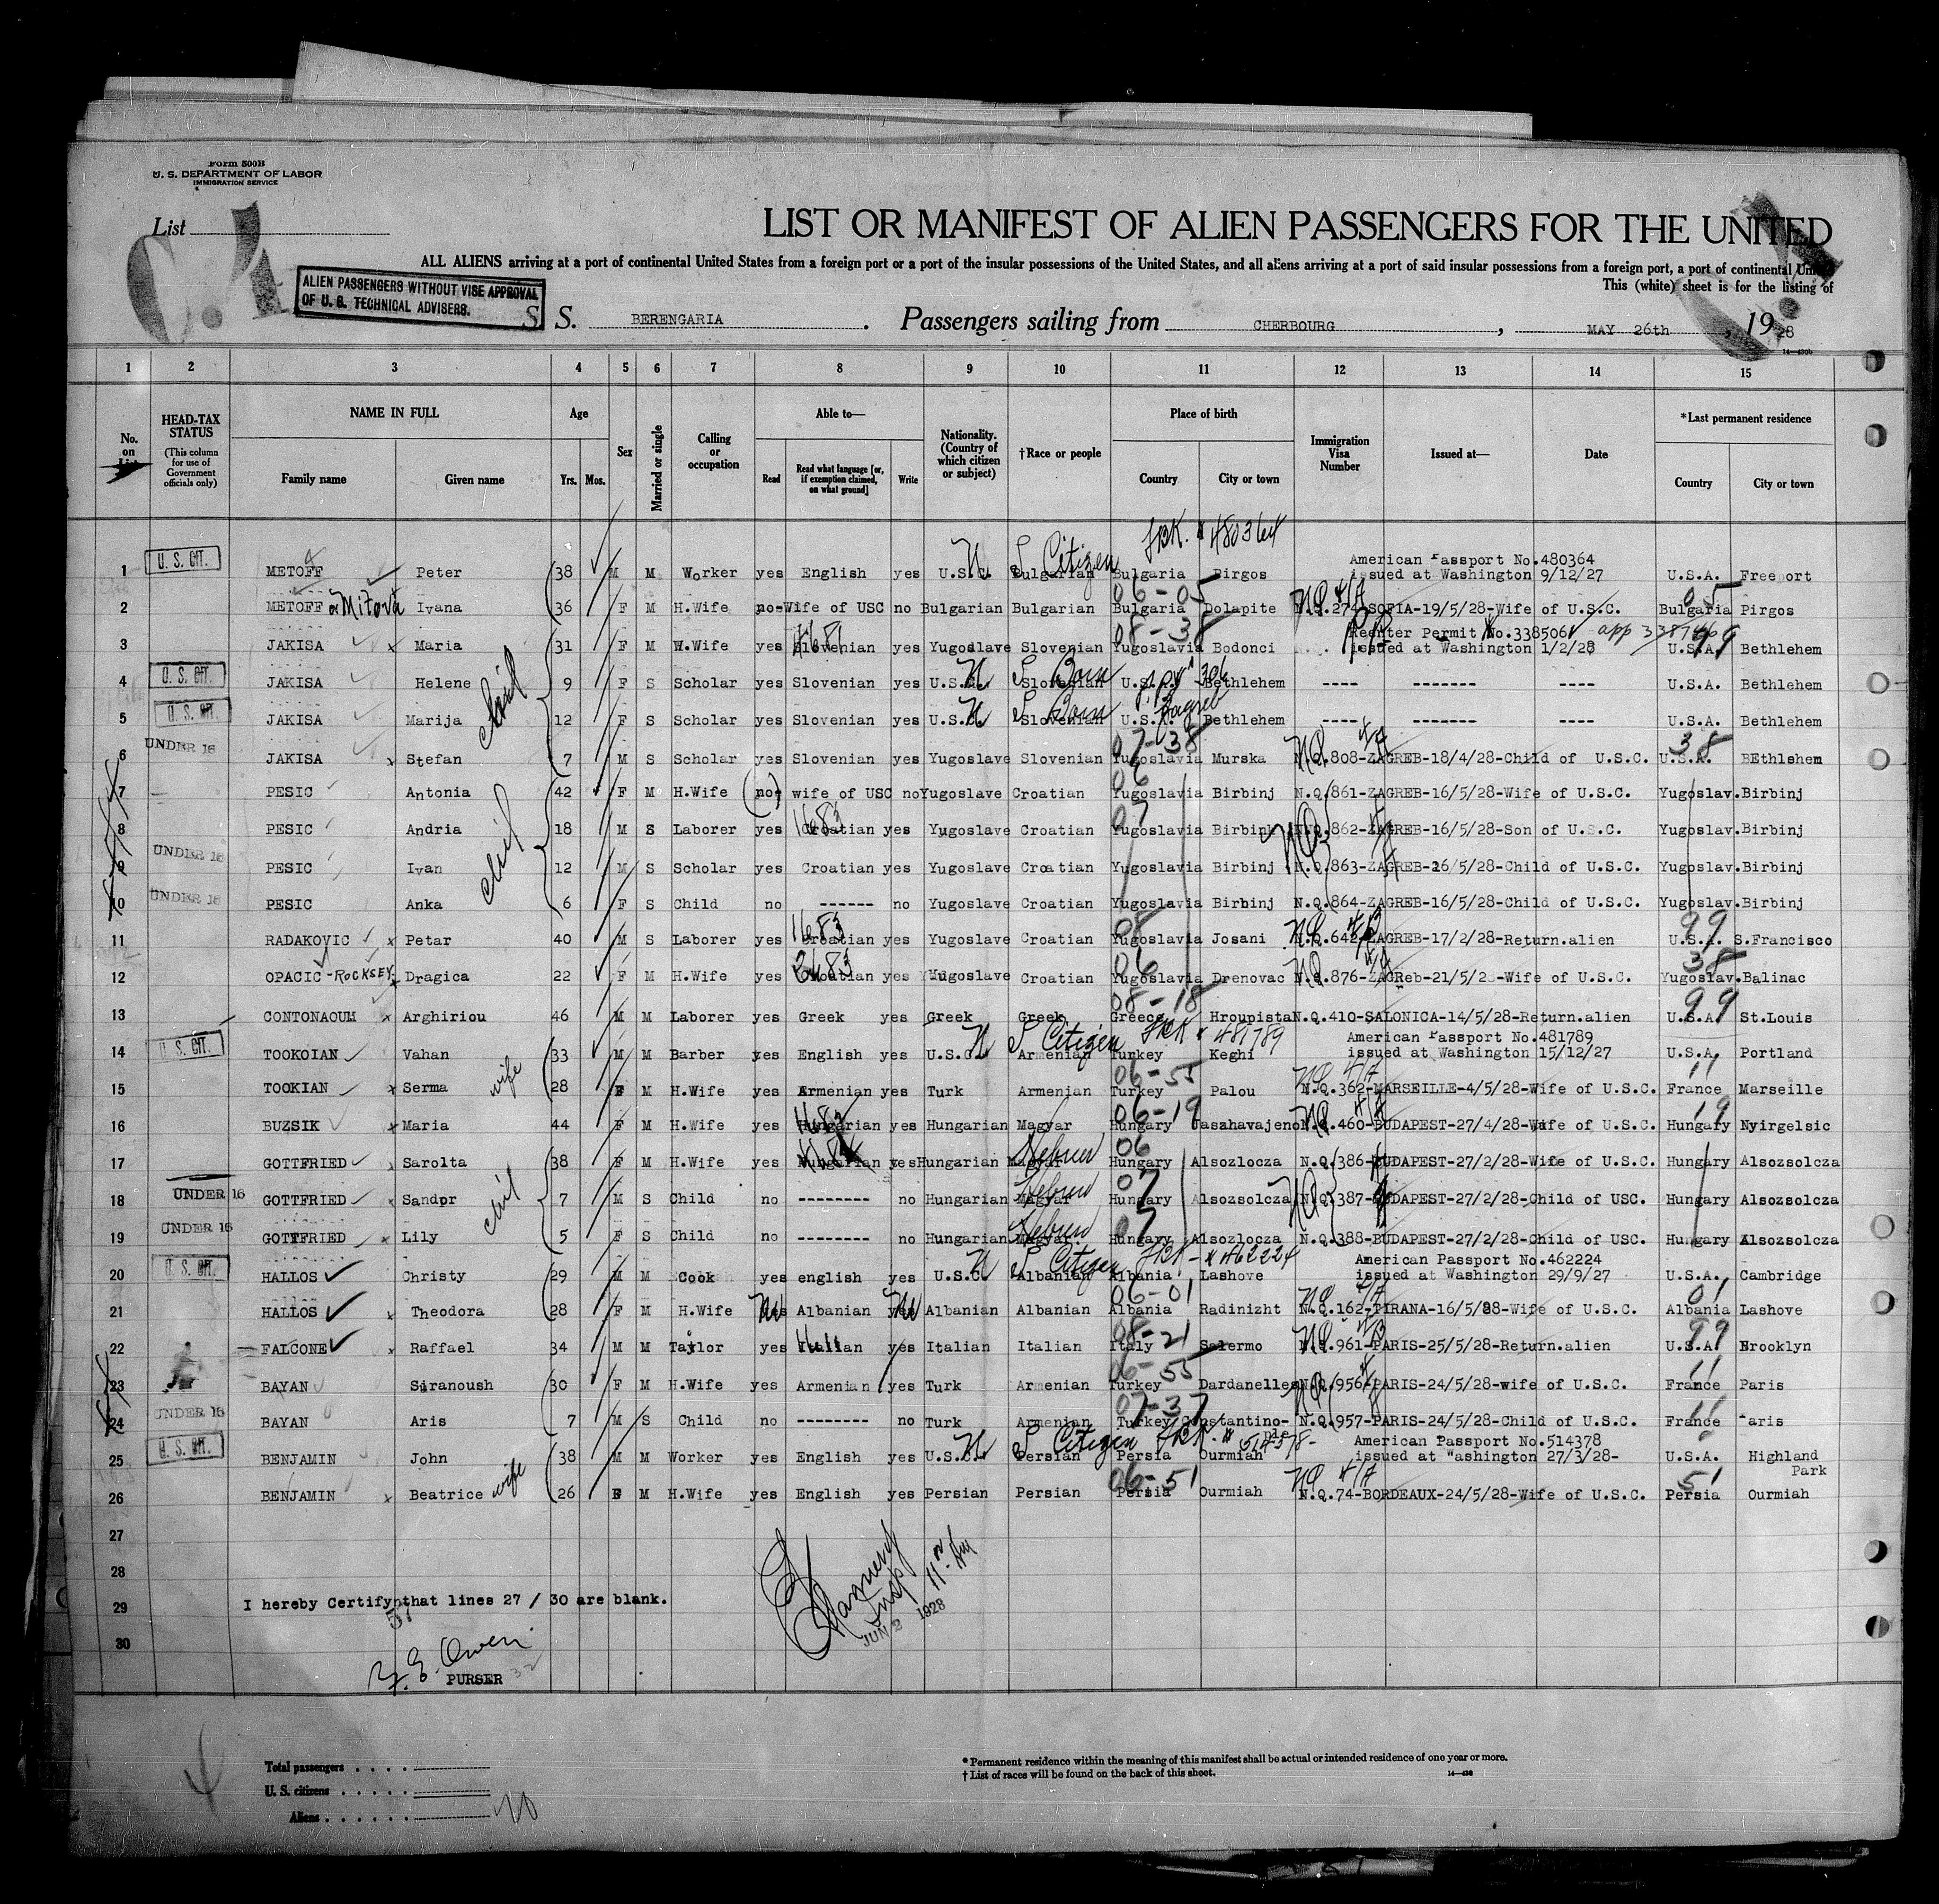 Form 500B
U. S. DEPARTMENT OF LABOR
IMMIGRATION SERVICE
List
LIST OR MANIFEST OF ALIEN PASSENGERS FOR THE UNITED
ALL ALIENS arriving at a port of continental United States from a foreign port or a port of the insular possessions of the United States, and all aliens arriving at a port of said insular possessions from a foreign port, a port of continental
This (white) sheet is for the listing of
ALIEN PASSENGERS WITHOUT VISE APPROVAL
OF U. S. TECHNICAL ADVISERS.
S. S. BERENGARIA . Passengers sailing from CHERBOURG , MAY 26th , 1928
14—430b
1 2 3 4 5 6 7 8 9 10 11 12 13 14 15
No. on List
HEAD-TAX STATUS (This column for use of Government officials only)
NAME IN FULL Family name Given name
Age Yrs. Mos.
Sex
Married or single
Calling or occupation
Able to— Read Read what language [or, if exemption claimed, on what ground] Write
Nationality. (Country of which citizen or subject)
†Race or people
Place of birth Country City or town
Immigration Visa Number
Issued at—
Date
*Last permanent residence Country City or town
1 U. S. CIT. METOFF Peter 38 M M Worker yes English yes U.S.C. Bulgarian U S Citizen Bulgaria Birgos 480364 American Passport No.480364 issued at Washington 9/12/27 U.S.A. Freeport
2 METOFF or Mitova Ivana 36 F M H.Wife no-Wife of USC no Bulgarian Bulgarian 06-05 Bulgaria Dolapite N.Q.274-SOFIA-19/5/28-Wife of U.S.C. 05 Bulgaria Pirgos
3 JAKISA Maria 31 F M W.Wife yes Slovenian yes Yugoslave Slovenian 08-38 Yugoslavia Bodonci Reenter Permit No.338506 issued at Washington 1/2/28 app 99 U.S.A. Bethlehem
4 U. S. CIT. JAKISA Helene 9 F S Scholar yes Slovenian yes U.S.A. Slovenian U S Born U.S.A. Bethlehem ---- ------- ---- U.S.A. Bethlehem
5 U. S. CIT. JAKISA Marija 12 F S Scholar yes Slovenian yes U.S.A. Slovenian U S Born U.S.A. Zagreb Bethlehem ---- ------- ---- U.S.A. Bethlehem
6 UNDER 16 JAKISA Stefan 7 M S Scholar yes Slovenian yes Yugoslave Slovenian 07-38 Yugoslavia Murska N.Q.808-ZAGREB-18/4/28-Child of U.S.C. 38 U.S.A. BEthlehem
7 PESIC Antonia 42 F M H.Wife no wife of USC no Yugoslave Croatian 06 Yugoslavia Birbinj N.Q.861-ZAGREB-16/5/28-Wife of U.S.C. Yugoslav. Birbinj
8 PESIC Andria 18 M S Laborer yes Croatian yes Yugoslave Croatian 07 Yugoslavia Birbinj N.Q.862-ZAGREB-16/5/28-Son of U.S.C. Yugoslav. Birbinj
9 UNDER 16 PESIC Ivan 12 M S Scholar yes Croatian yes Yugoslave Croatian Yugoslavia Birbinj N.Q.863-ZAGREB-16/5/28-Child of U.S.C. Yugoslav. Birbinj
10 UNDER 16 PESIC Anka 6 F S Child no ------ no Yugoslave Croatian Yugoslavia Birbinj N.Q.864-ZAGREB-16/5/28-Child of U.S.C. Yugoslav. Birbinj
11 RADAKOVIC Petar 40 M S Laborer yes Croatian yes Yugoslave Croatian 08 Yugoslavia Josani N.Q.642-ZAGREB-17/2/28-Return.alien 99 U.S.A. S.Francisco
12 OPACIC -ROCKSEY Dragica 22 F M H.Wife yes Croatian yes Yugoslave Croatian 06 Yugoslavia Drenovac N.Q.876-ZAGReb-21/5/28-Wife of U.S.C. 38 Yugoslav. Balinac
13 CONTONAOUM Arghiriou 46 M M Laborer yes Greek yes Greek Greek 08-18 Greece Hroupista N.Q.410-SALONICA-14/5/28-Return.alien 99 U.S.A. St.Louis
14 U. S. CIT. TOOKOIAN Vahan 33 M M Barber yes English yes U.S.C. Armenian U S Citizen Turkey Keghi 481789 American Passport No.481789 issued at Washington 15/12/27 U.S.A. Portland
15 TOOKIAN Serma wife 28 F M H.Wife yes Armenian yes Turk Armenian 06-55 Turkey Palou N.Q.362-MARSEILLE-4/5/28-Wife of U.S.C. 11 France Marseille
16 BUZSIK Maria 44 F M H.Wife yes Hungarian yes Hungarian Magyar 06-19 Hungary Jaszhavajeno N.Q.460-BUDAPEST-27/4/28-Wife of U.S.C. 19 Hungary Nyirgelsic
17 GOTTFRIED Sarolta 38 F M H.Wife yes Hungarian yes Hungarian Magyar Hebrew 06 Hungary Alsozlocza N.Q.386-BUDAPEST-27/2/28-Wife of U.S.C. Hungary Alsozsolcza
18 UNDER 16 GOTTFRIED Sandor 7 M S Child no -------- no Hungarian Magyar Hebrew 07 Hungary Alsozsolcza N.Q.387-BUDAPEST-27/2/28-Child of USC. Hungary Alsozsolcza
19 UNDER 16 GOTTFRIED Lily 5 F S Child no -------- no Hungarian Magyar Hebrew 07 Hungary Alsozlocza N.Q.388-BUDAPEST-27/2/28-Child of USC. Hungary Alsozsolcza
20 U. S. CIT. HALLOS Christy 29 M M Cook yes english yes U.S.C. Albanian U S Citizen Albania Lashove 462224 American Passport No.462224 issued at Washington 29/9/27 U.S.A. Cambridge
21 HALLOS Theodora 28 F M H.Wife No Albanian No Albanian Albanian 06-01 Albania Radinizht N.Q.162-TIRANA-16/5/28-Wife of U.S.C. 01 Albania Lashove
22 FALCONE Raffael 34 M M Taylor yes Italian yes Italian Italian 08-21 Italy Salermo N.Q.961-PARIS-25/5/28-Return.alien 99 U.S.A. Brooklyn
23 BAYAN Siranoush 30 F M H.Wife yes Armenian yes Turk Armenian 06-55 Turkey Dardanelles N.Q.956-PARIS-24/5/28-wife of U.S.C. 11 France Paris
24 UNDER 16 BAYAN Aris 7 M S Child no -------- no Turk Armenian 07-37 Turkey Constantino-ple N.Q.957-PARIS-24/5/28-Child of U.S.C. 11 France Paris
25 U. S. CIT. BENJAMIN John 38 M M Worker yes English yes U.S.C. Persian U S Citizen Persia Ourmiah 514378- American Passport No.514378 issued at Washington 27/3/28- U.S.A. Highland Park
26 BENJAMIN Beatrice wife 26 F M H.Wife yes English yes Persian Persian 06-51 Persia Ourmiah N.Q.74-BORDEAUX-24/5/28-Wife of U.S.C. 51 Persia Ourmiah
27
28
29 I hereby Certify that lines 27 / 30 are blank.
30
JUN 2 1928
PURSER
Total passengers
U. S. citizens
Aliens
* Permanent residence within the meaning of this manifest shall be actual or intended residence of one year or more.
† List of races will be found on the back of this sheet.